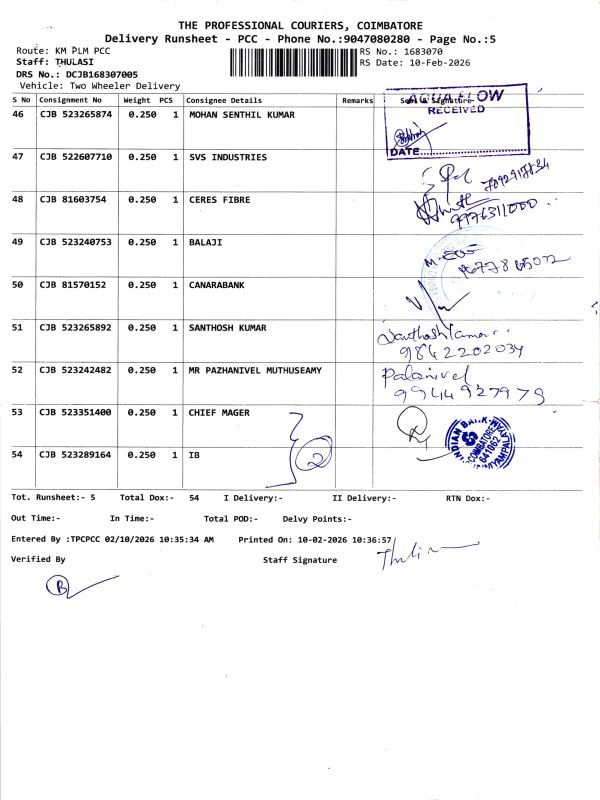 THE PROFESSIONAL COURIERS, COIMBATORE
Delivery Runsheet - PCC - Phone No.:9047080280 - Page No.:5
Route: KM PLM PCC
Staff: THULASI
DRS No.: DCJB168307005
Vehicle: Two Wheeler Delivery
RS No.: 1683070
RS Date: 10-Feb-2026
S No Consignment No Weight PCS Consignee Details Remarks Seal & Signature
46 CJB 523265874 0.250 1 MOHAN SENTHIL KUMAR
RECEIVED
DATE
47 CJB 522607710 0.250 1 SVS INDUSTRIES
48 CJB 81603754 0.250 1 CERES FIBRE
9976311000
49 CJB 523240753 0.250 1 BALAJI
50 CJB 81570152 0.250 1 CANARABANK
51 CJB 523265892 0.250 1 SANTHOSH KUMAR
Santhosh Kumar
9842202034
52 CJB 523242482 0.250 1 MR PAZHANIVEL MUTHUSEAMY
Palanivel
9944927979
53 CJB 523351400 0.250 1 CHIEF MAGER
54 CJB 523289164 0.250 1 IB
2
INDIAN BANK
COIMBATORE
641062
Tot. Runsheet:- 5 Total Dox:- 54 I Delivery:- II Delivery:- RTN Dox:-
Out Time:- In Time:- Total POD:- Delvy Points:-
Entered By :TPCPCC 02/10/2026 10:35:34 AM Printed On: 10-02-2026 10:36:57
Verified By Staff Signature
B